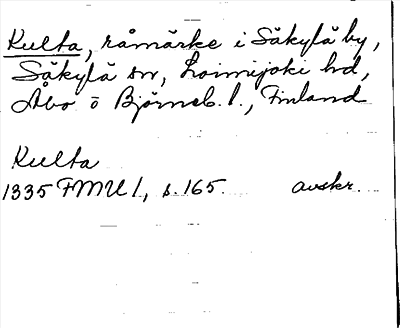 Kulta, råmärke i Säkylä by,
Säkylä sn, Loimijoki hd,
Åbo o Björneb. l., Finland
Kulta
1335 FMU 1, s. 165. avskr.